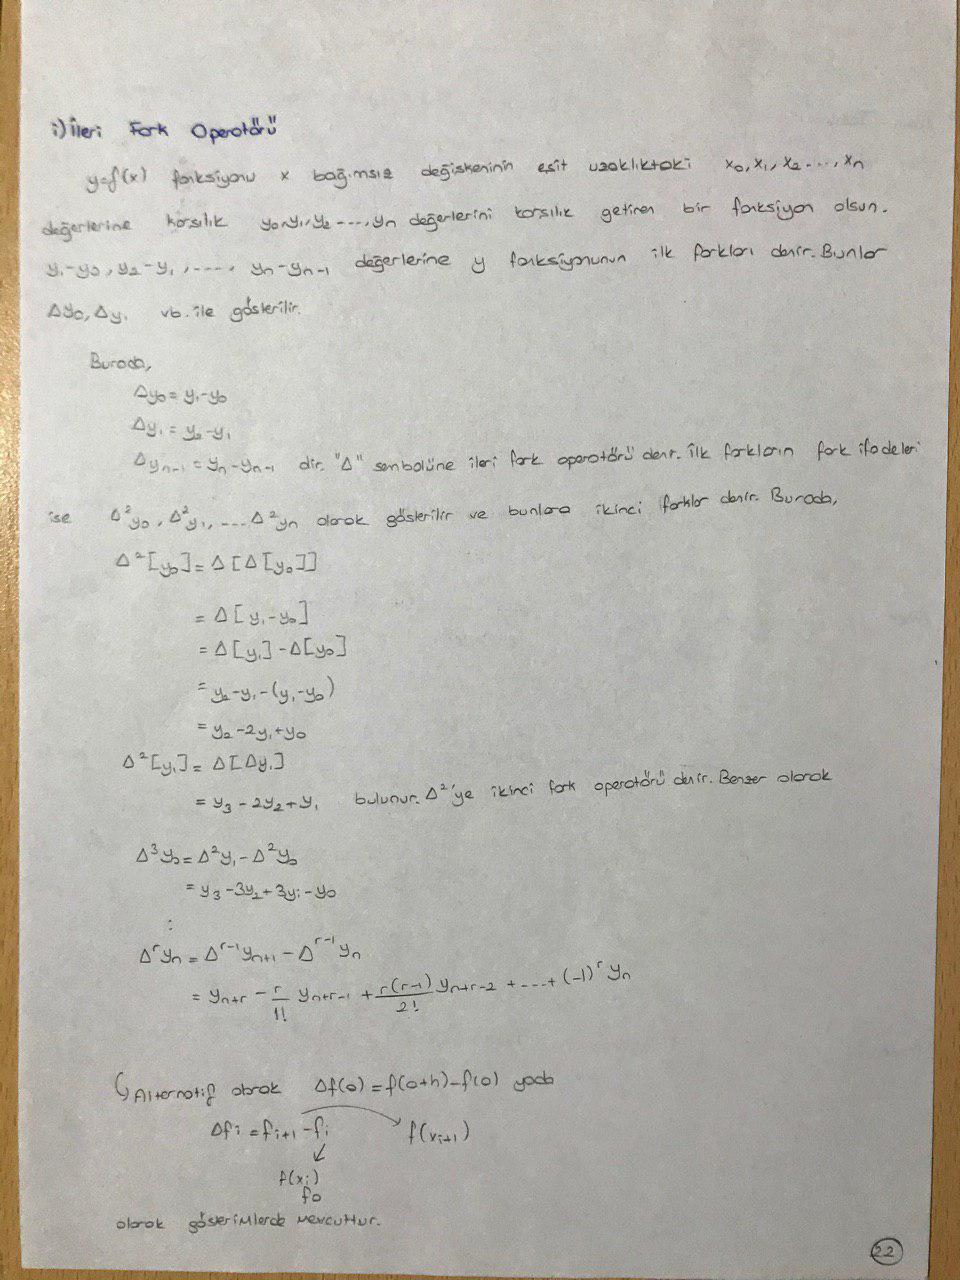 i) İleri Fark Operatörü
y=f(x) fonksiyonu x bağımsız değişkeninin eşit uzaklıktaki x₀, x₁, x₂ ...., xₙ
değerlerine karşılık y₀, y₁, y₂ ...., yₙ değerlerini karşılık getiren bir fonksiyon olsun.
y₁-y₀, y₂-y₁, ...., yₙ-yₙ₋₁ değerlerine y fonksiyonunun ilk farkları denir. Bunlar
Δy₀, Δy₁ vb. ile gösterilir.
Burada,
Δy₀ = y₁-y₀
Δy₁ = y₂-y₁
Δyₙ₋₁ = yₙ-yₙ₋₁ dir. "Δ" sembolüne ileri fark operatörü denir. İlk farkların fark ifadeleri
ise Δ²y₀, Δ²y₁, .... Δ²yₙ olarak gösterilir ve bunlara ikinci farklar denir. Burada,
Δ²[y₀] = Δ[Δ[y₀]]
= Δ[y₁-y₀]
= Δ[y₁] - Δ[y₀]
= y₂-y₁-(y₁-y₀)
= y₂-2y₁+y₀
Δ²[y₁] = Δ[Δy₁]
= y₃-2y₂+y₁ bulunur. Δ²'ye ikinci fark operatörü denir. Benzer olarak
Δ³y₀ = Δ²y₁ - Δ²y₀
= y₃-3y₂+3y₁-y₀
:
Δʳyₙ = Δʳ⁻¹yₙ₊₁ - Δʳ⁻¹yₙ
= yₙ₊ᵣ - r/1! yₙ₊ᵣ₋₁ + r(r-1)/2! yₙ₊ᵣ₋₂ + .... + (-1)ʳ yₙ
↳ Alternatif olarak Δf(a) = f(a+h)-f(a) yada
Δfᵢ = fᵢ₊₁ - fᵢ → f(xᵢ₊₁)
↙
f(xᵢ)
f₀
olarak gösterimlerde mevcuttur.
22